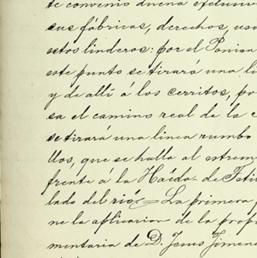 te convenio dueña esclusiv
sus fábricas, derechos, uso
estos linderos: por el Ponien
este punto se tirará una li
y de alli á los cerritos, po
sa el camino real de la
se tirará una linea rumbo
llos, que se halla al estrem
frente á la Hacda. de Teti
lado del rio = La primera
ne la aplicacion de la prop
mentaria de D. Jesus Jimene